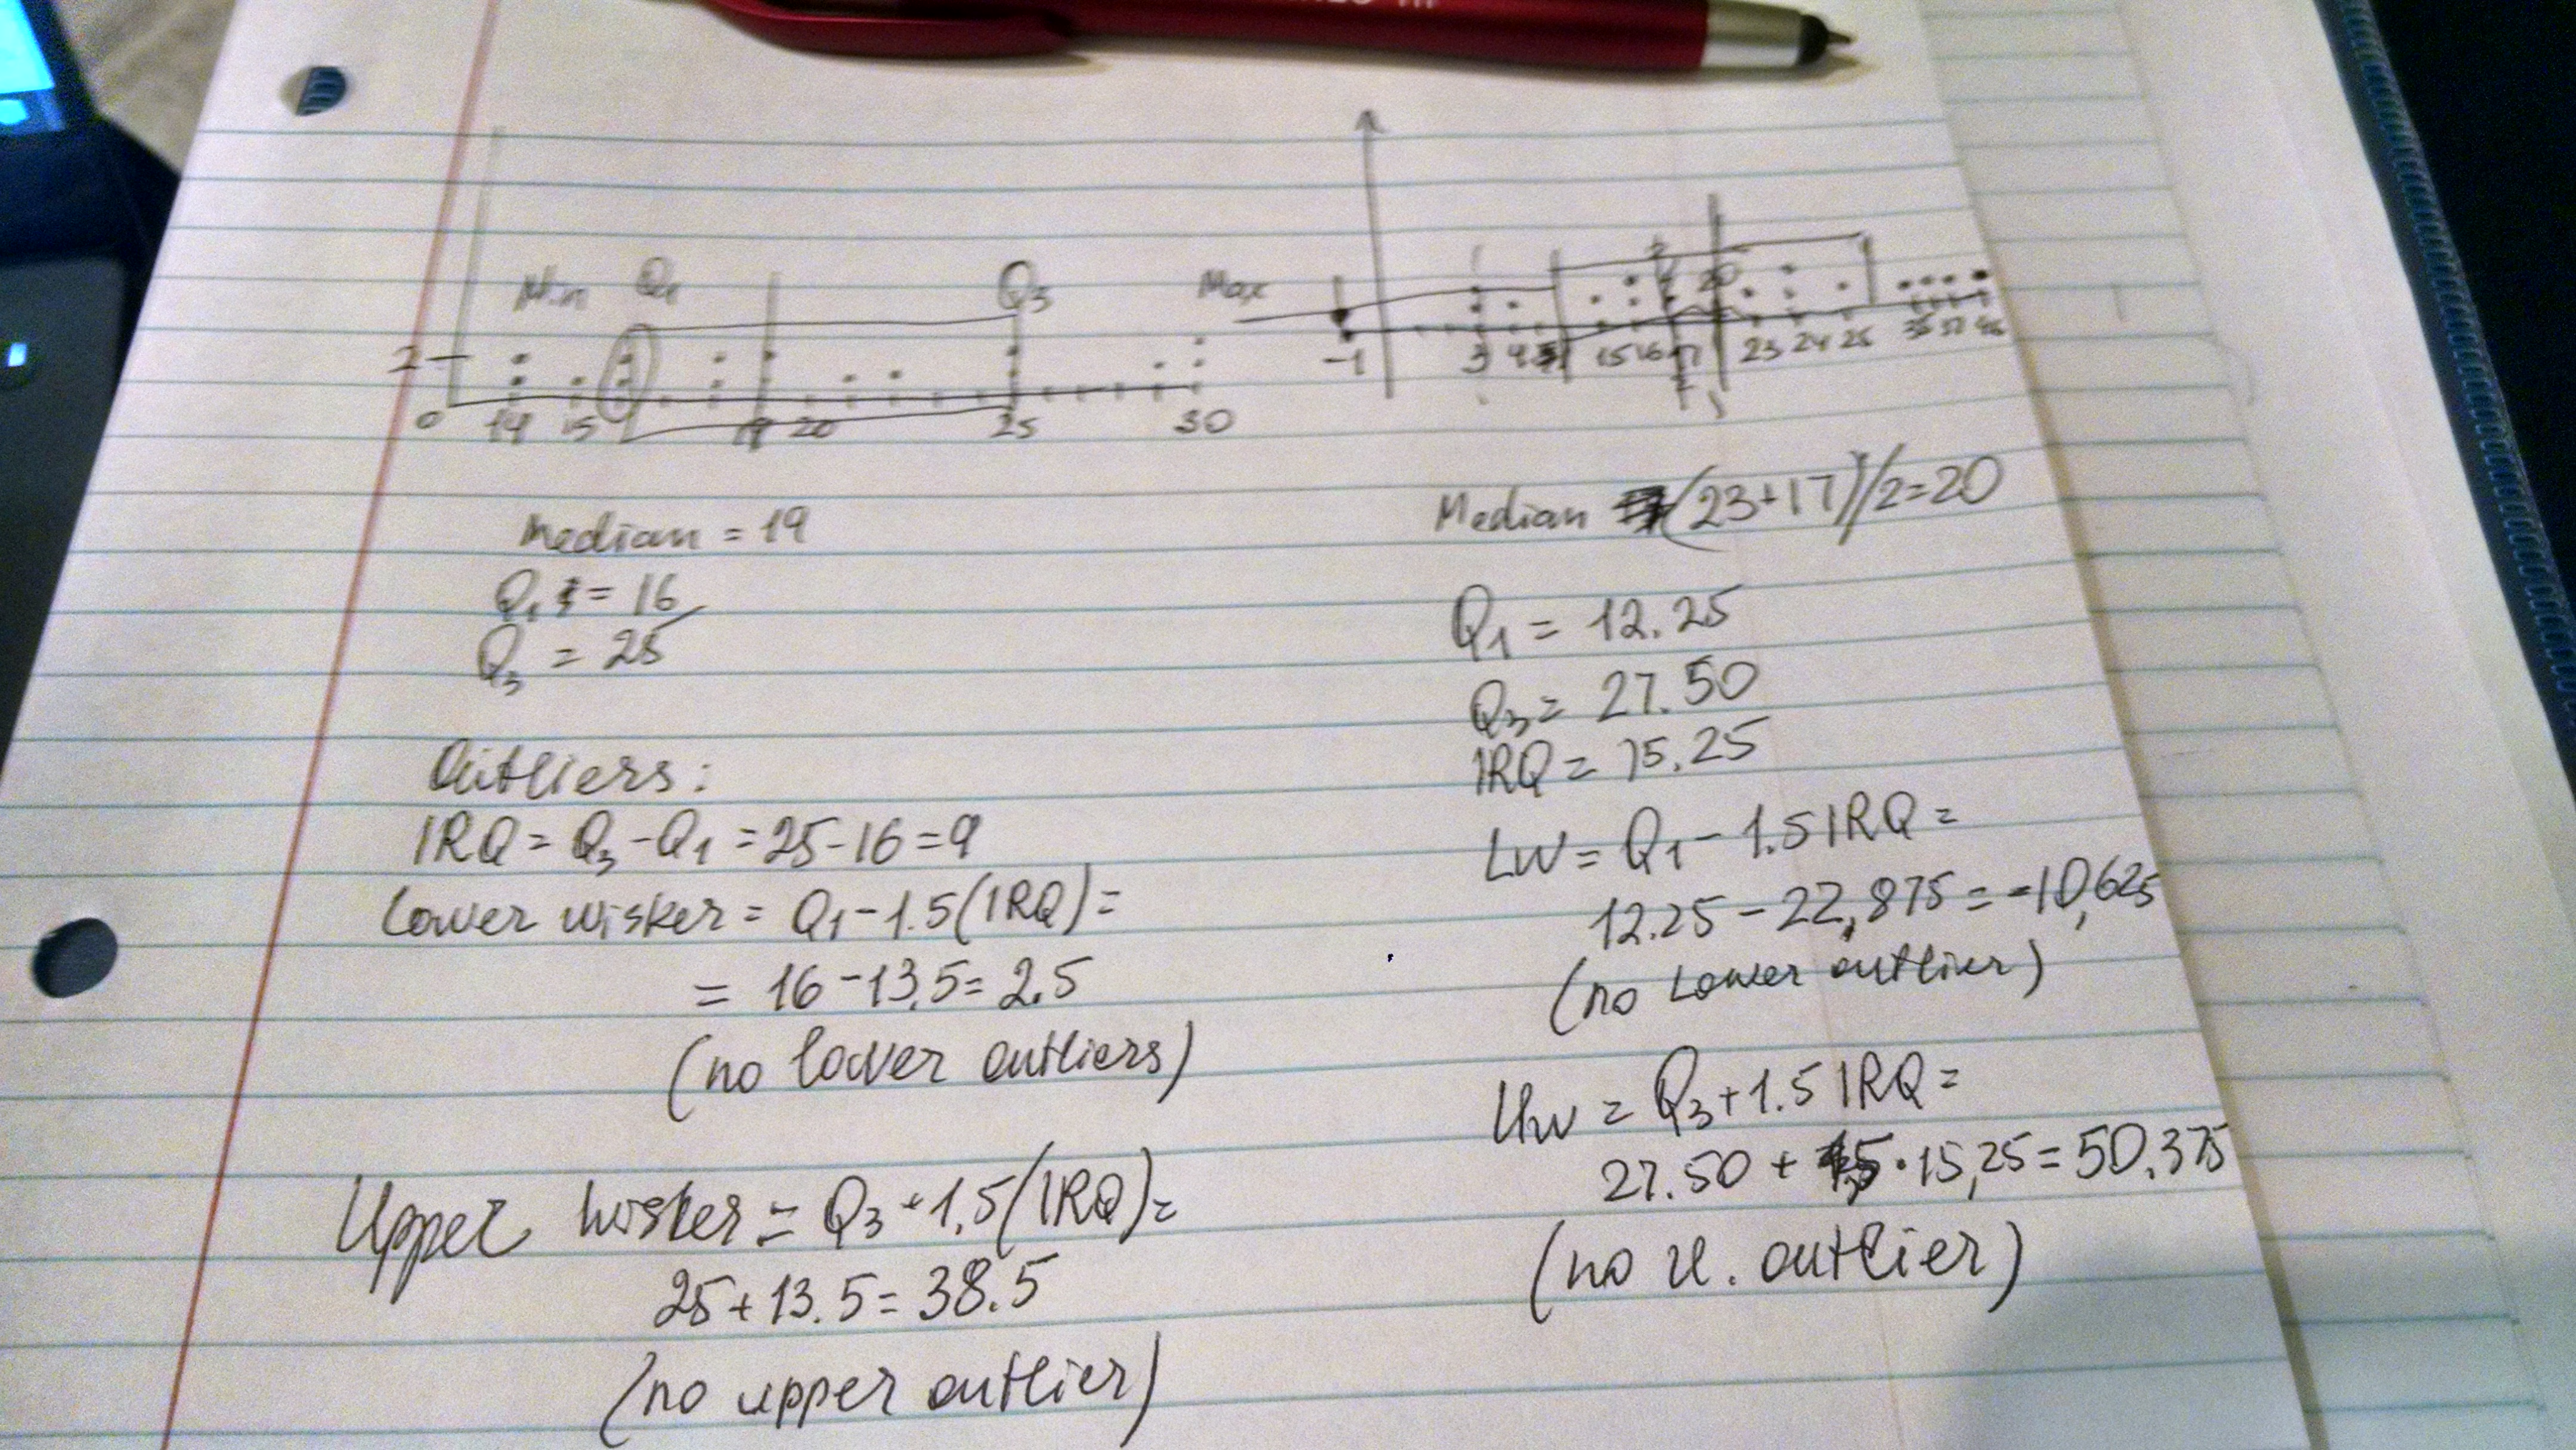 Min Q1 Q3 Max
2
0 14 15 19 20 25 30
20
-1 3 15 16 17 23 24 25
Median = 19
Q1 = 16
Q3 = 25
Outliers:
IRQ = Q3 - Q1 = 25 - 16 = 9
Lower wisker = Q1 - 1.5(IRQ) =
= 16 - 13.5 = 2.5
(no lower outliers)
Upper wisker = Q3 + 1,5(IRQ) =
25 + 13.5 = 38.5
(no upper outlier)
Median (23+17)/2=20
Q1 = 12.25
Q3 = 27.50
IRQ = 15.25
LW = Q1 - 1.5 IRQ =
12.25 - 22,875 = -10,625
(no Lower outlier)
UW = Q3 + 1.5 IRQ =
27.50 + 1,5 · 15,25 = 50.375
(no u. outlier)